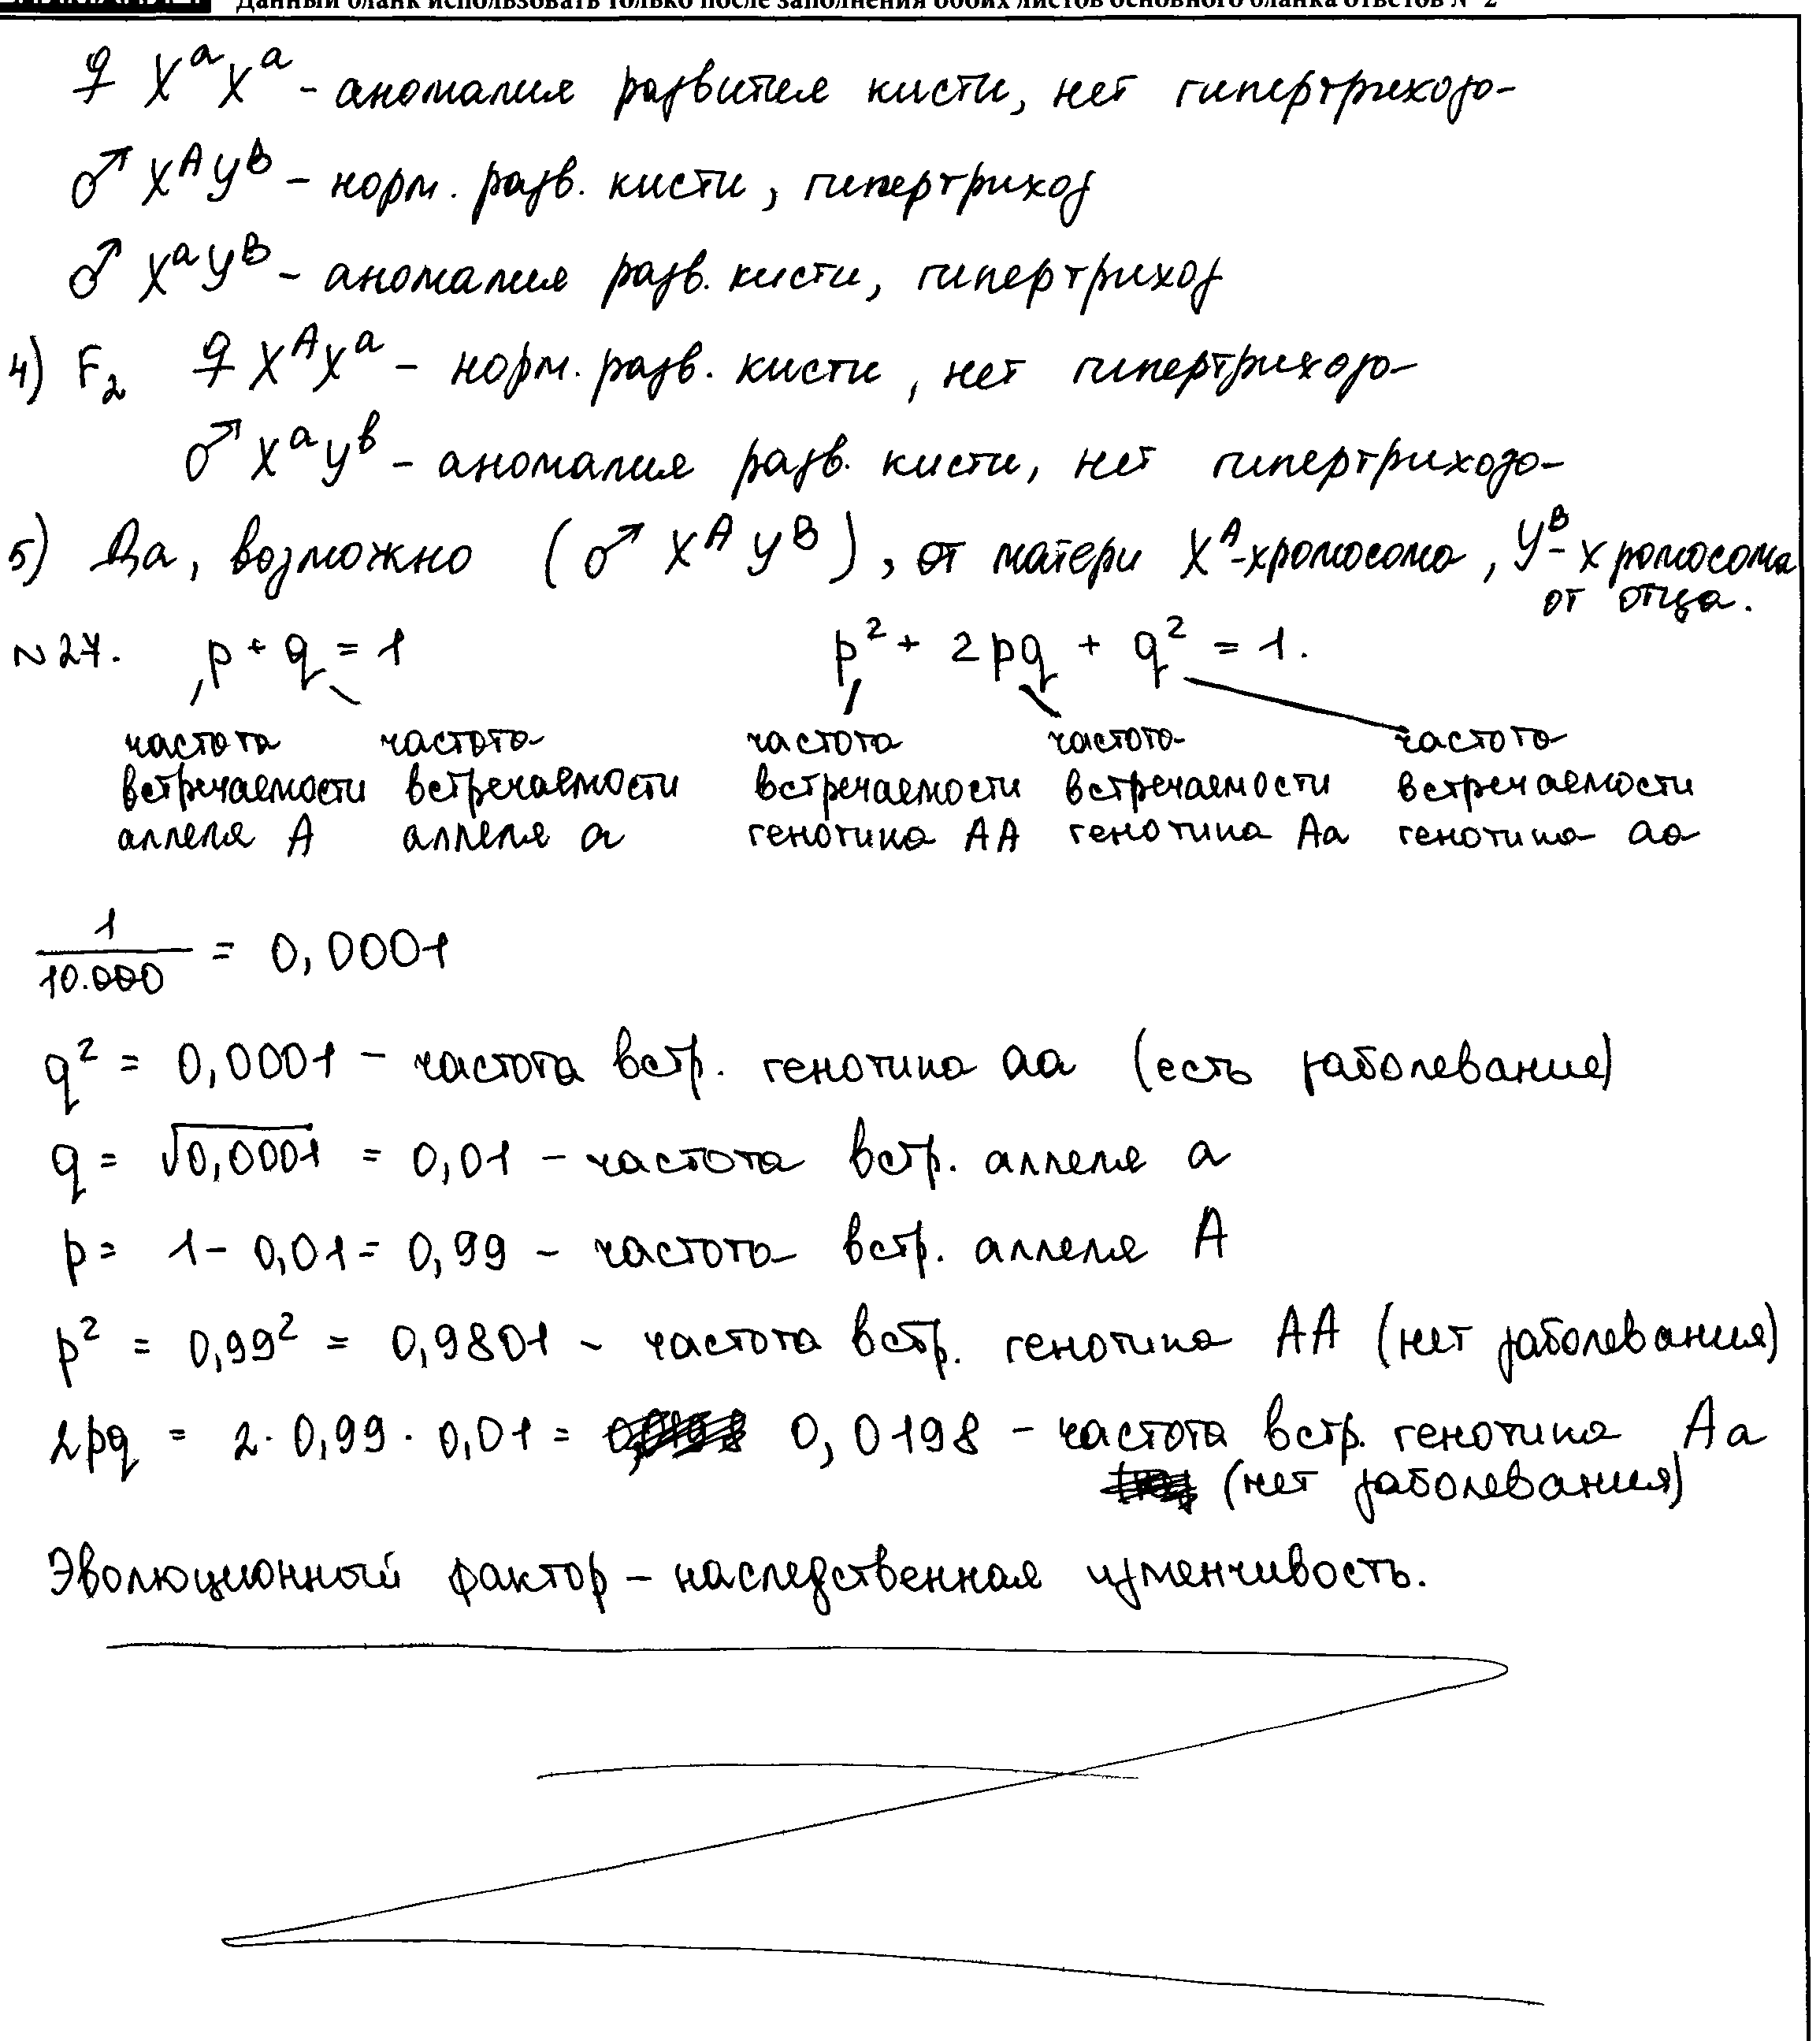 Данный бланк использовать только после заполнения обоих листов основного бланка ответов № 2
♀ XᵃXᵃ - аномалия развития кисти, нет гипертрихоза
♂ XᴬYᴮ - норм. разв. кисти, гипертрихоз
♂ XᵃYᴮ - аномалия разв. кисти, гипертрихоз
4) F₂ ♀ XᴬXᵃ - норм. разв. кисти, нет гипертрихоза
♂ XᵃYᵇ - аномалия разв. кисти, нет гипертрихоза
5) Да, возможно (♂ XᴬYᴮ), от матери Xᴬ-хромосома, Yᴮ-хромосома
от отца.
№27. p + q = 1 p² + 2pq + q² = 1.
частота частота частота частота частота
встречаемости встречаемости встречаемости встречаемости встречаемости
аллеля А аллеля а генотипа АА генотипа Аа генотипа аа
1/10.000 = 0,0001
q² = 0,0001 - частота встр. генотипа аа (есть заболевание)
q = √0,0001 = 0,01 - частота встр. аллеля а
p = 1 - 0,01 = 0,99 - частота встр. аллеля А
p² = 0,99² = 0,9801 - частота встр. генотипа АА (нет заболевания)
2pq = 2 · 0,99 · 0,01 = 0,0198 - частота встр. генотипа Аа
(нет заболевания)
Эволюционный фактор - наследственная изменчивость.